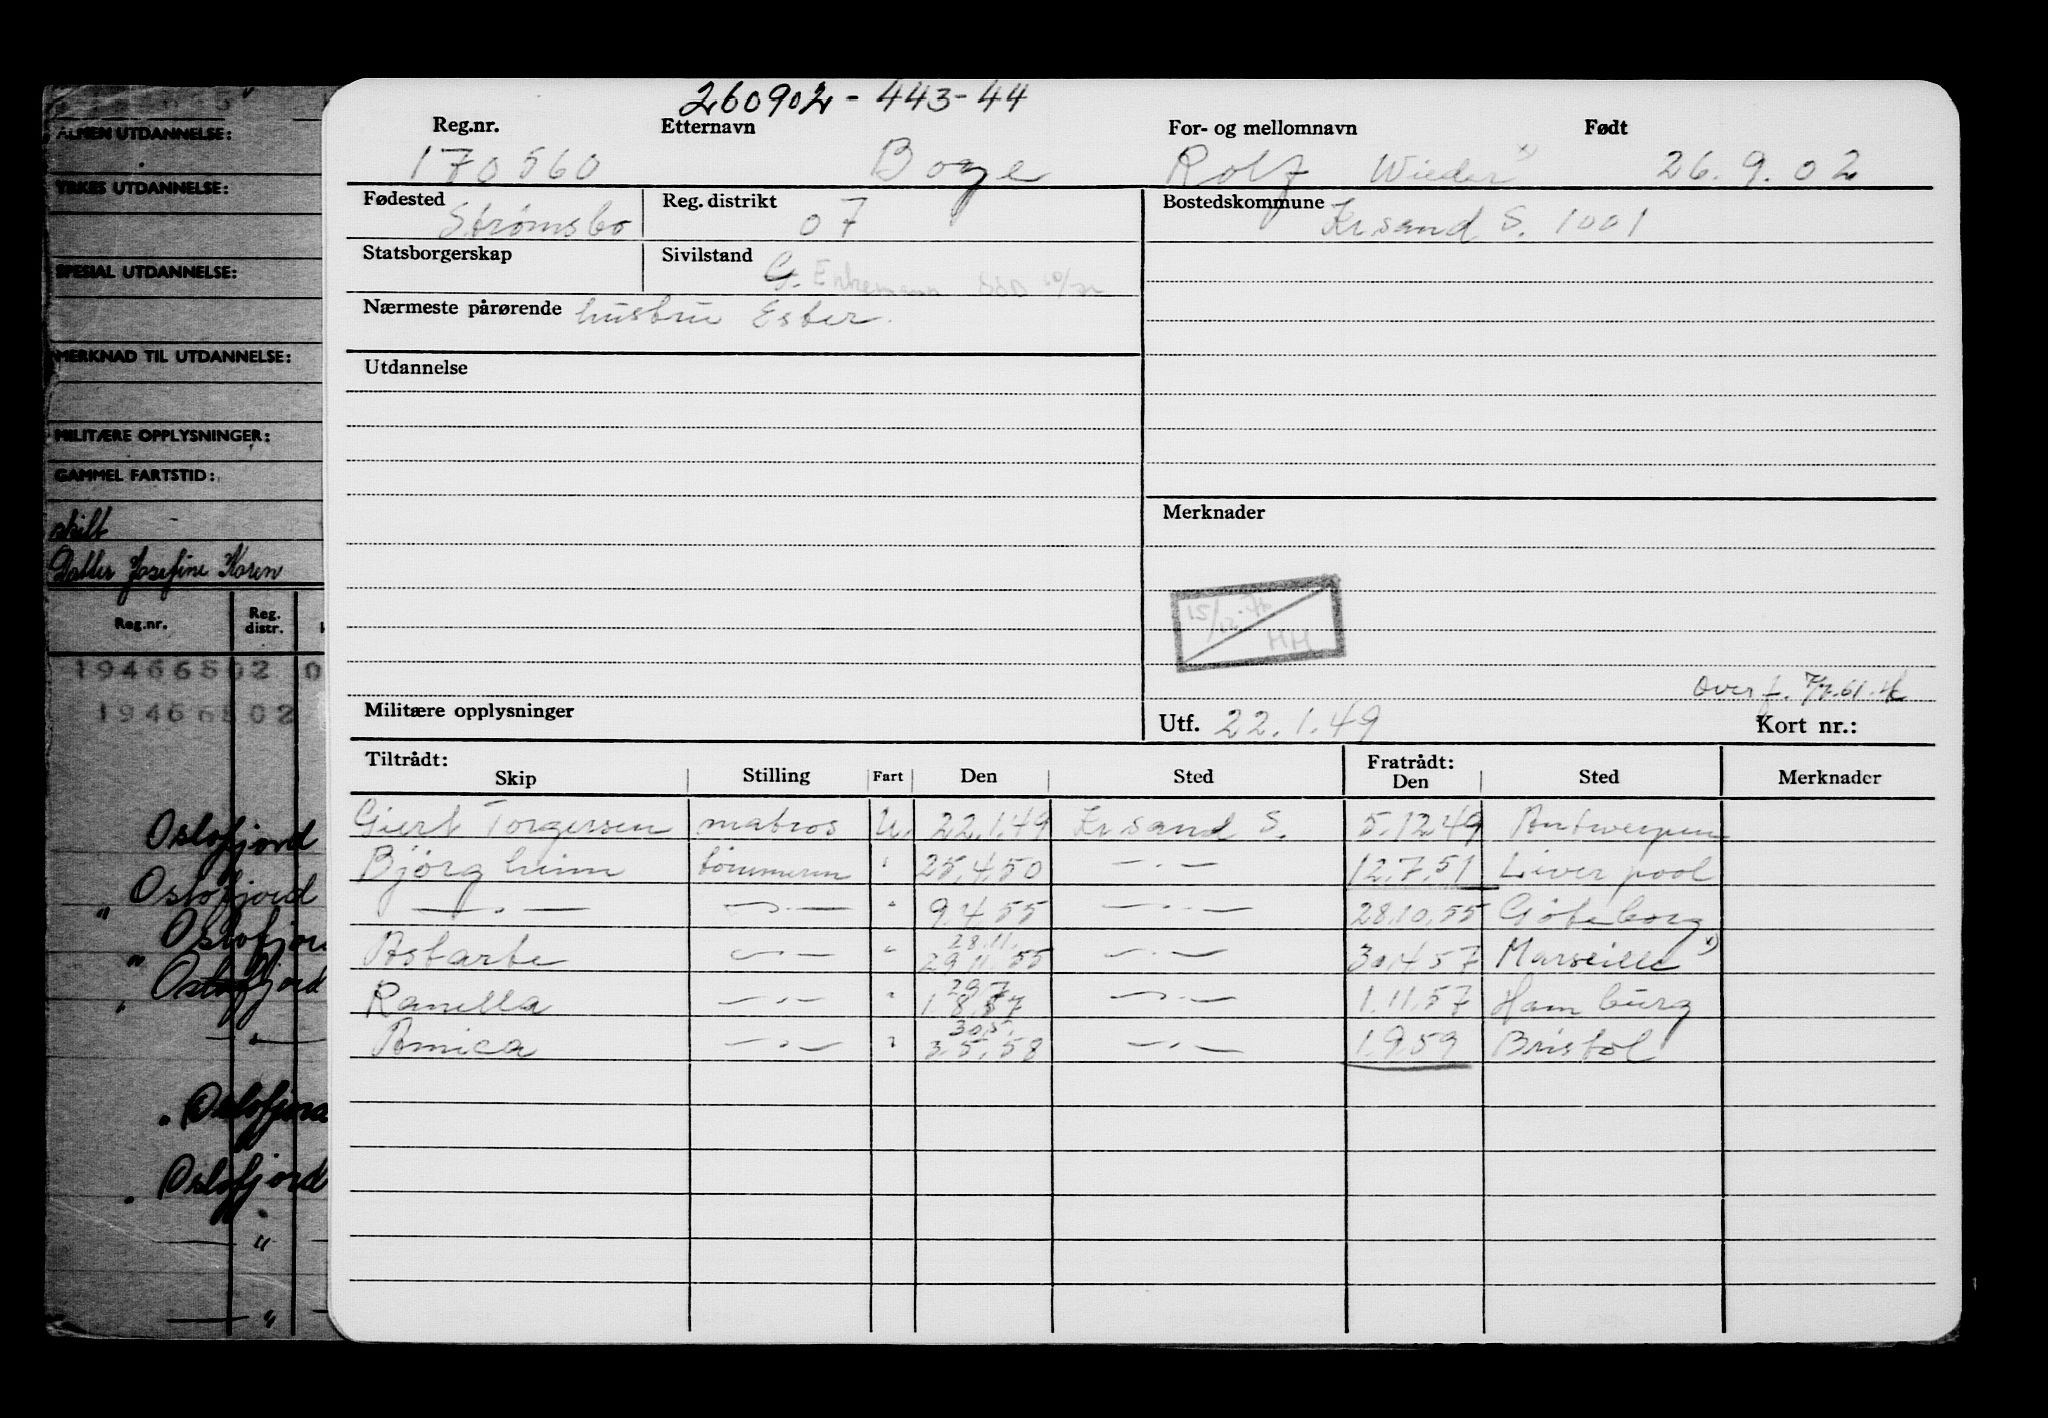 ALMEN UTDANNELSE:
YRKES UTDANNELSE:
SPESIAL UTDANNELSE:
MERKNAD TIL UTDANNELSE:
MILITÆRE OPPLYSNINGER:
GAMMEL FARTSTID:
skilt
Datter Josefine Karen
Reg.nr. Reg. distr.
19466502 0
19466502
Oslofjord
Oslofjord
" Oslofjord
" Oslofjord
— " —
" Oslofjord
" Oslofjord
— " —
— " —
260902 - 443-44
Reg.nr. Etternavn For- og mellomnavn Født
170560 Boye Rolf Wieder x) 26.9.02
Fødested Strømsbo Reg. distrikt 07 Bostedskommune Kr.sand S. 1001
Statsborgerskap Sivilstand G. Enkemann
Nærmeste pårørende hustru Ester.
Utdannelse
Merknader
15/12.76
HH
Overf. 7/7.61.
Militære opplysninger Utf. 22.1.49 Kort nr.:
Tiltrådt: Fratrådt:
Skip Stilling Fart Den Sted Den Sted Merknader
Giert Torgersen matros U. 22.1.49 Kr.sand S. 5.12.49 Antwerpen
Bjørgheim tømmerm " 25.4.50 — " — 12.7.51 Liverpool
— " — — " — " 9.4.55 — " — 28.10.55 Göteborg
28.11.
Astarte — " — " 29.11.55 — " — 30.4.57 Marseille x)
29.7
Ranella — " — " 1.8.57 — " — 1.11.57 Hamburg
30.5.
Amica — " — " 3.5.58 — " — 1.9.59 Bristol